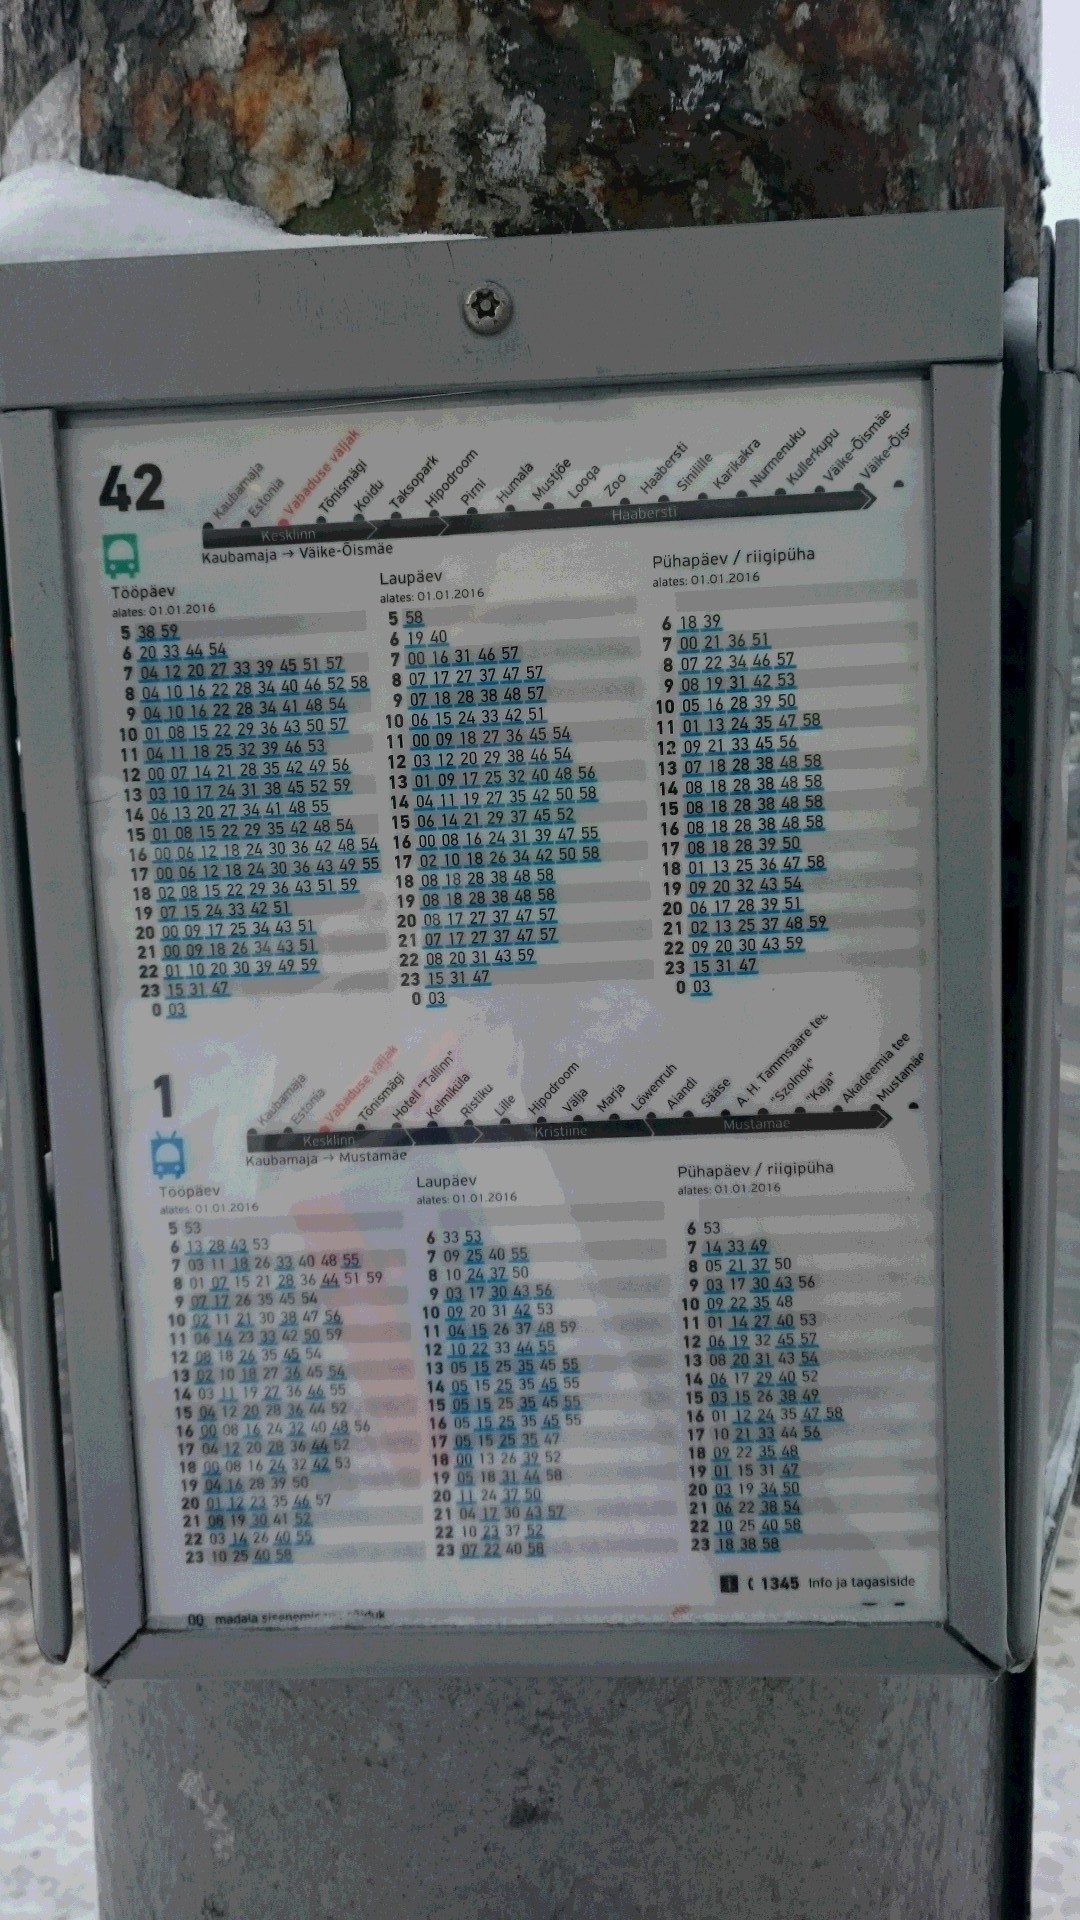 42
Kaubamaja Estonia Vabaduse väljak Tõnismägi Koidu Taksopark Hipodroom Pirni Humala Mustjõe Looga Zoo Haabersti Sinilille Karikakra Nurmenuku Kullerkupu Väike-Õismäe
Kesklinn Haabersti
Kaubamaja → Väike-Õismäe
Tööpäev
alates: 01.01.2016
5 38 59
6 20 33 44 54
7 04 12 20 27 33 39 45 51 57
8 04 10 16 22 28 34 40 46 52 58
9 04 10 16 22 28 34 41 48 54
10 01 08 15 22 29 36 43 50 57
11 04 11 18 25 32 39 46 53
12 00 07 14 21 28 35 42 49 56
13 03 10 17 24 31 38 45 52 59
14 06 13 20 27 34 41 48 55
15 01 08 15 22 29 35 42 48 54
16 00 06 12 18 24 30 36 42 48 54
17 00 06 12 18 24 30 36 43 49 55
18 02 08 15 22 29 36 43 51 59
19 07 15 24 33 42 51
20 00 09 17 25 34 43 51
21 00 09 18 26 34 43 51
22 01 10 20 30 39 49 59
23 15 31 47
0 03
Laupäev
alates: 01.01.2016
5 58
6 19 40
7 00 16 31 46 57
8 07 17 27 37 47 57
9 07 18 28 38 48 57
10 06 15 24 33 42 51
11 00 09 18 27 36 45 54
12 03 12 20 29 38 46 54
13 01 09 17 25 32 40 48 56
14 04 11 19 27 35 42 50 58
15 06 14 21 29 37 45 52
16 00 08 16 24 31 39 47 55
17 02 10 18 26 34 42 50 58
18 08 18 28 38 48 58
19 08 18 28 38 48 58
20 08 17 27 37 47 57
21 07 17 27 37 47 57
22 08 20 31 43 59
23 15 31 47
0 03
Pühapäev / riigipüha
alates: 01.01.2016
6 18 39
7 00 21 36 51
8 07 22 34 46 57
9 08 19 31 42 53
10 05 16 28 39 50
11 01 13 24 35 47 58
12 09 21 33 45 56
13 07 18 28 38 48 58
14 08 18 28 38 48 58
15 08 18 28 38 48 58
16 08 18 28 38 48 58
17 08 18 28 39 50
18 01 13 25 36 47 58
19 09 20 32 43 54
20 06 17 28 39 51
21 02 13 25 37 48 59
22 09 20 30 43 59
23 15 31 47
0 03
1
Kaubamaja Estonia Vabaduse väljak Tõnismägi Hotell "Tallinn" Kelmiküla Ristiku Lille Hipodroom Välja Marja Löwenruh Aiandi Sääse A. H. Tammsaare tee "Szolnok" "Kaja" Akadeemia tee Mustamäe
Kesklinn Kristiine Mustamäe
Kaubamaja → Mustamäe
Tööpäev
alates: 01.01.2016
5 53
6 13 28 43 53
7 03 11 18 26 33 40 48 55
8 01 07 15 21 28 36 44 51 59
9 07 17 26 35 45 54
10 02 11 21 30 38 47 56
11 06 14 23 33 42 50 59
12 08 18 26 35 45 54
13 02 10 18 27 36 45 54
14 03 11 19 27 36 46 55
15 04 12 20 28 36 44 52
16 00 08 16 24 32 40 48 56
17 04 12 20 28 36 44 52
18 00 08 16 24 32 42 53
19 04 16 28 39 50
20 01 12 23 35 46 57
21 08 19 30 41 52
22 03 14 26 40 55
23 10 25 40 58
Laupäev
alates: 01.01.2016
6 33 53
7 09 25 40 55
8 10 24 37 50
9 03 17 30 43 56
10 09 20 31 42 53
11 04 15 26 37 48 59
12 10 22 33 44 55
13 05 15 25 35 45 55
14 05 15 25 35 45 55
15 05 15 25 35 45 55
16 05 15 25 35 45 55
17 05 15 25 35 47
18 00 13 26 39 52
19 05 18 31 44 58
20 11 24 37 50
21 04 17 30 43 57
22 10 23 37 52
23 07 22 40 58
Pühapäev / riigipüha
alates: 01.01.2016
6 53
7 14 33 49
8 05 21 37 50
9 03 17 30 43 56
10 09 22 35 48
11 01 14 27 40 53
12 06 19 32 45 57
13 08 20 31 43 54
14 06 17 29 40 52
15 03 15 26 38 49
16 01 12 24 35 47 58
17 10 21 33 44 56
18 09 22 35 48
19 01 15 31 47
20 03 19 34 50
21 06 22 38 54
22 10 25 40 58
23 18 38 58
1345 Info ja tagasiside
00 madala